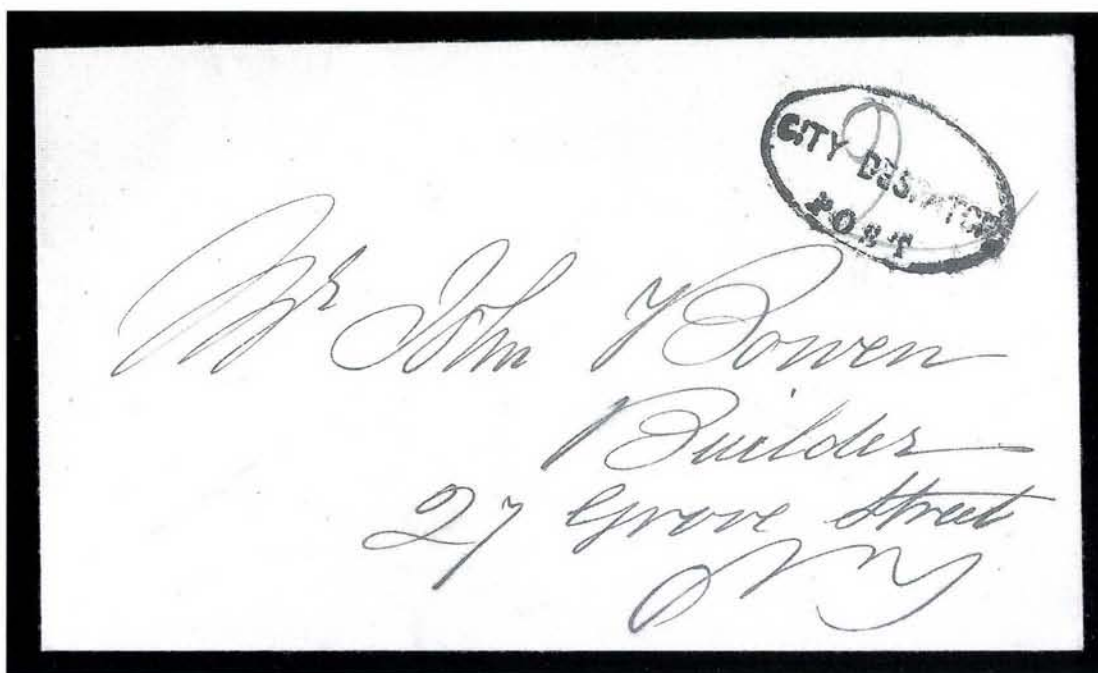 CITY DESPATCH
POST
Mr John Bowen
Builder
27 Grove Street
NY